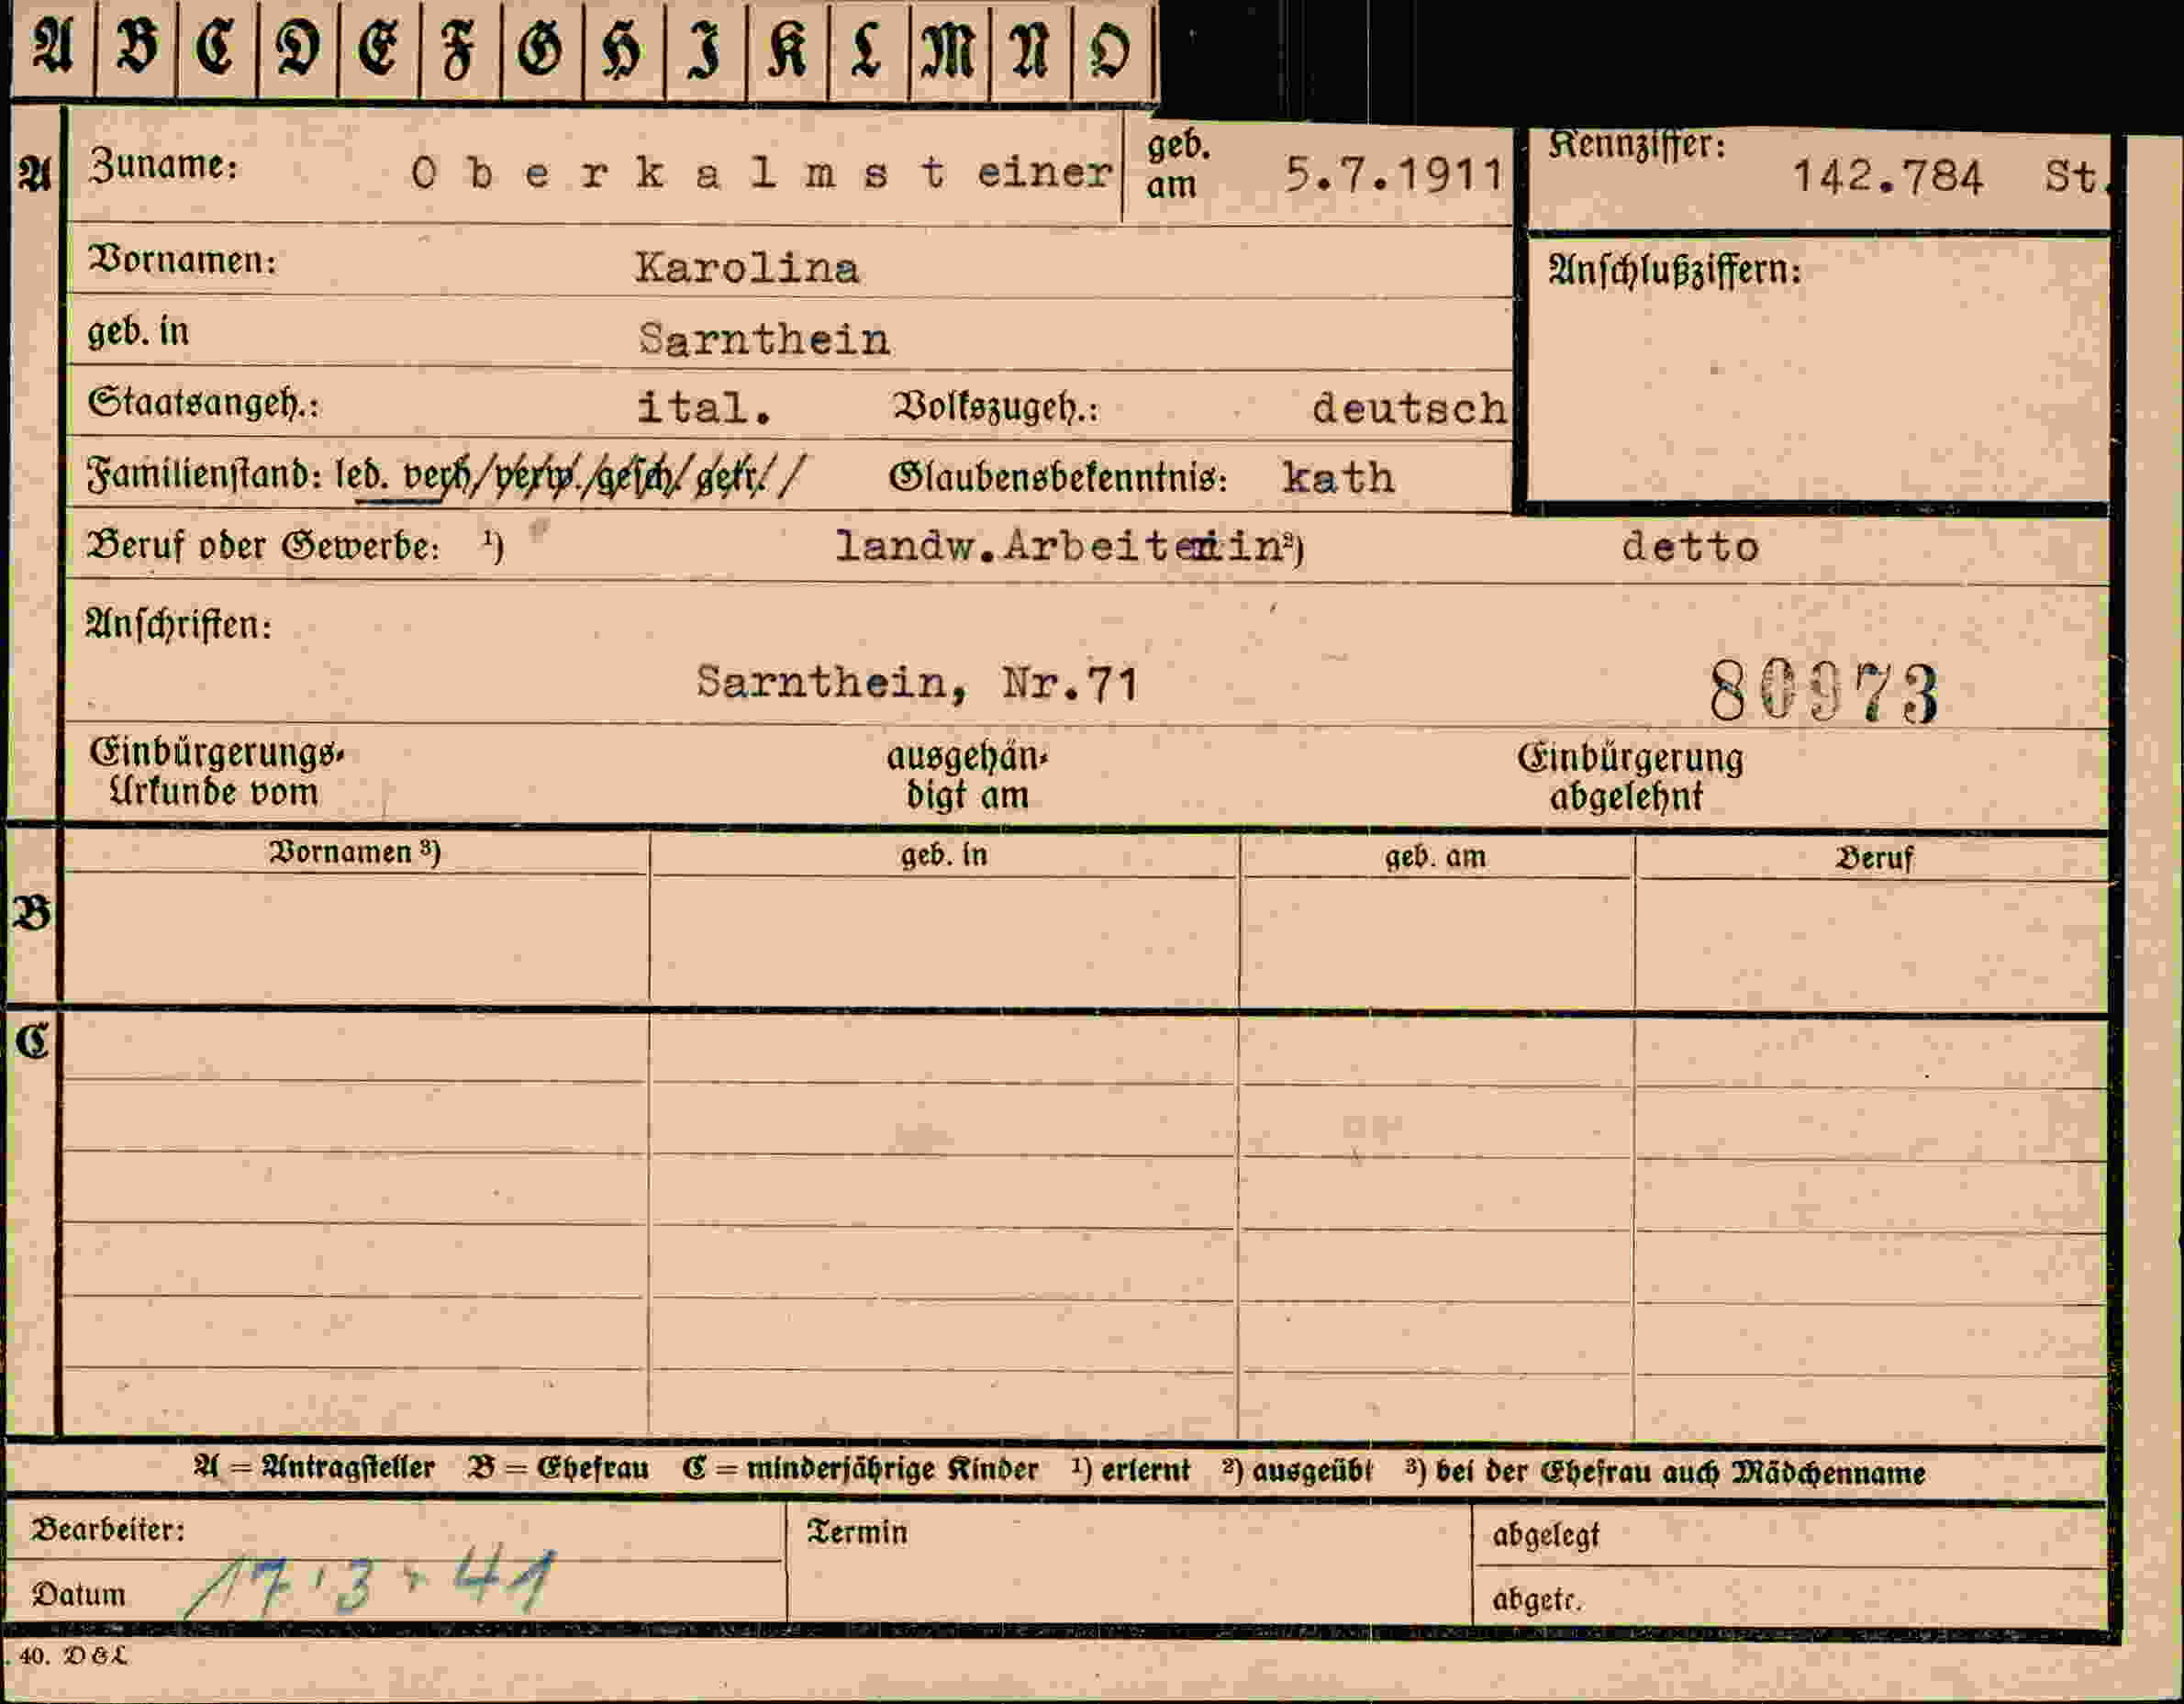 A B C D E F G H I K L M N O
A Zuname: O b e r k a l m s t einer geb. am 5.7.1911 Kennziffer: 142.784 St.
Vornamen: Karolina Anschlußziffern:
geb. in Sarnthein
Staatsangeh.: ital. Volkszugeh.: deutsch
Familienstand: led. verh/verw./gesch/getr/ / Glaubensbekenntnis: kath
Beruf oder Gewerbe: ¹) landw.Arbeiterin ²) detto
Anschriften:
Sarnthein, Nr.71 80973
Einbürgerungs- ausgehän- Einbürgerung
Urkunde vom digt am abgelehnt
Vornamen ³) geb. in geb. am Beruf
B
C
A = Antragsteller B = Ehefrau C = minderjährige Kinder ¹) erlernt ²) ausgeübt ³) bei der Ehefrau auch Mädchenname
Bearbeiter: Termin abgelegt
Datum 17.3.41 abgetr.
. 40. D & L